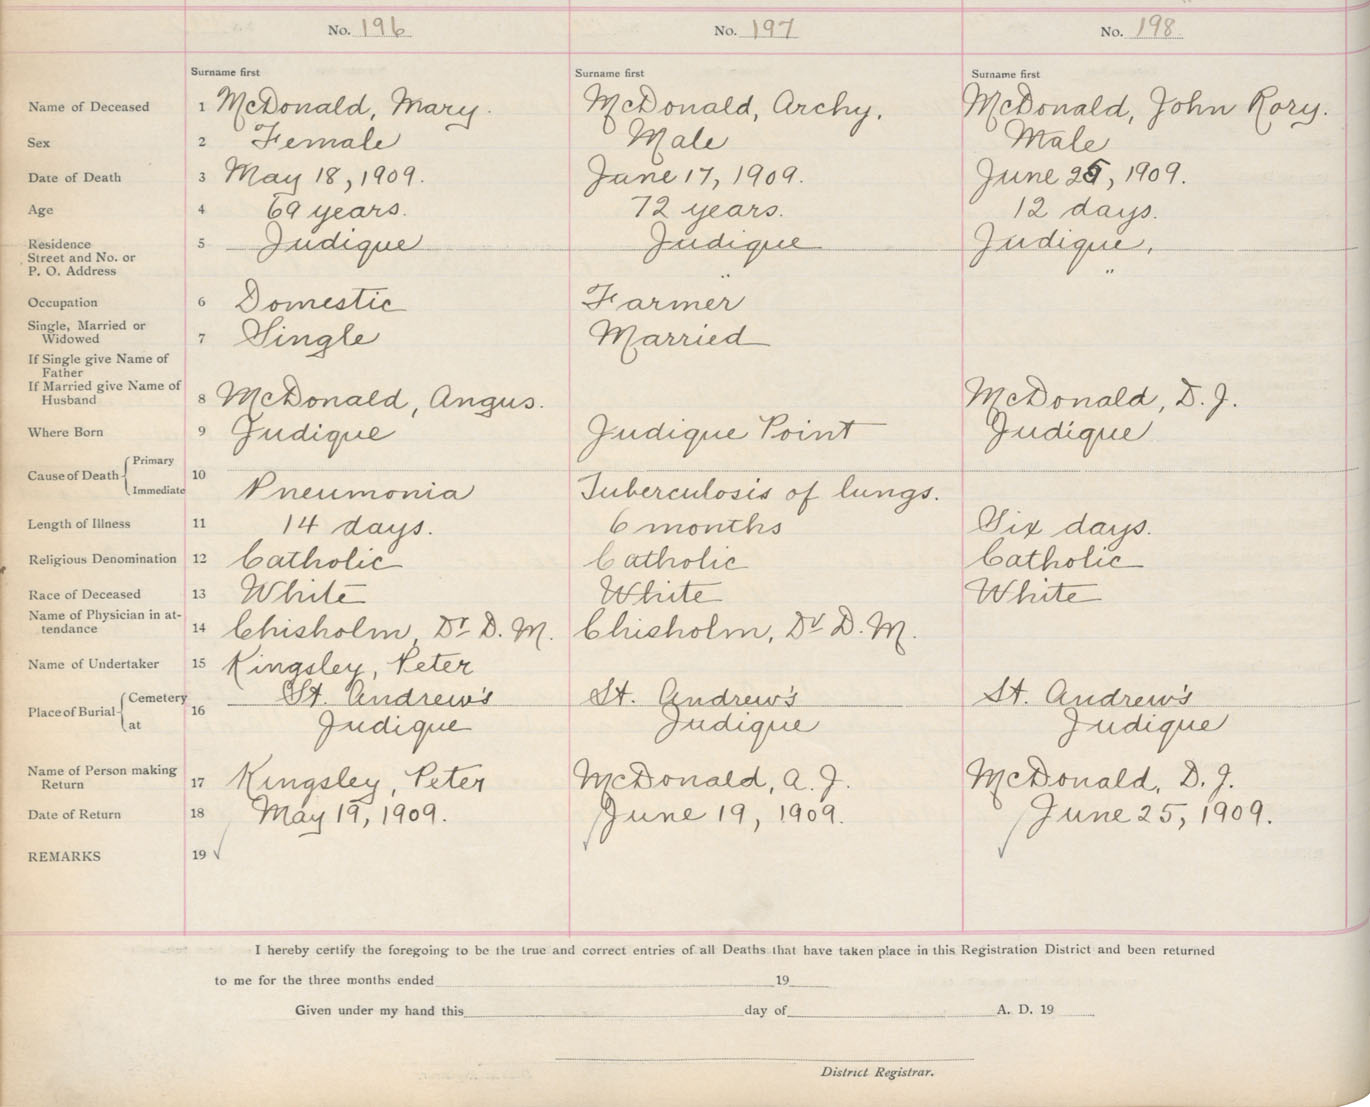 No. 196 No. 197 No. 198
Surname first Surname first Surname first
Name of Deceased 1 McDonald, Mary. McDonald, Archy. McDonald, John Rory.
Sex 2 Female Male Male
Date of Death 3 May 18, 1909. June 17, 1909. June 25, 1909.
Age 4 69 years. 72 years. 12 days.
Residence 5 Judique Judique Judique,
Street and No. or
P. O. Address " "
Occupation 6 Domestic Farmer
Single, Married or
Widowed 7 Single Married
If Single give Name of
Father
If Married give Name of
Husband 8 McDonald, Angus. McDonald, D. J.
Where Born 9 Judique Judique Point Judique
Cause of Death Primary 10
Immediate Pneumonia Tuberculosis of lungs.
Length of Illness 11 14 days. 6 months Six days.
Religious Denomination 12 Catholic Catholic Catholic
Race of Deceased 13 White White White
Name of Physician in at-
tendance 14 Chisholm, Dr D. M. Chisholm, Dr D. M.
Name of Undertaker 15 Kingsley, Peter
Place of Burial Cemetery 16 St. Andrew's St. Andrew's St. Andrew's
at Judique Judique Judique
Name of Person making
Return 17 Kingsley, Peter McDonald, A. J. McDonald, D. J.
Date of Return 18 May 19, 1909. June 19, 1909. June 25, 1909.
REMARKS 19
I hereby certify the foregoing to be the true and correct entries of all Deaths that have taken place in this Registration District and been returned
to me for the three months ended 19
Given under my hand this day of A. D. 19
District Registrar.